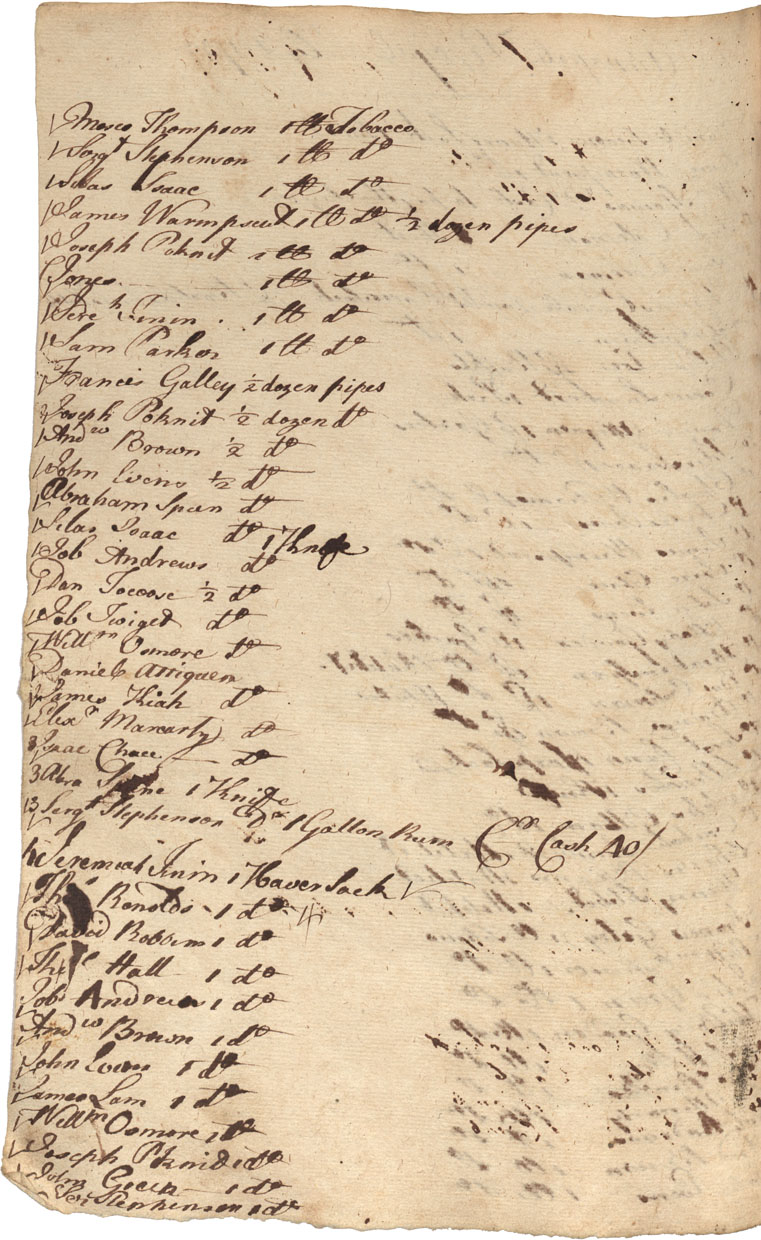 Moses Thompson 1 lb Tobacco
Sergt Stephenson 1 lb do
Silas Isaac 1 lb do
James Warmpscut 1 lb do ½ dozen pipes
Joseph Poknit 1 lb do
Jones 1 lb do
Jereh Jinin 1 lb do
Sam Parker 1 lb do
Francis Galley ½ dozen pipes
Joseph Poknit ½ dozen do
Andw Brown ½ do
John Evens ½ do
Abraham Speen do
Silas Isaac do 1 Knife
Job Andrews do
Dan Tocoose ½ do
Job Twiget do
Willm Osmore do
Daniel Attiquen
James Kiah do
Elexr Marcarty do
Isaac Chace do
3 Abra 1 Knife
13 Sergt Stephenson Dr 1 Gallon Rum Cr Cash 40/
Jeremiah Jinin 1 Haversack
Renolds 1 do
David Robbins 1 do
Hall 1 do
Job Andrews 1 do
Andw Brown 1 do
John Evens 1 do
James Lam 1 do
Willm Osmore 1 do
Joseph Poknit 1 do
John Green 1 do
Ser Stephenson 1 do